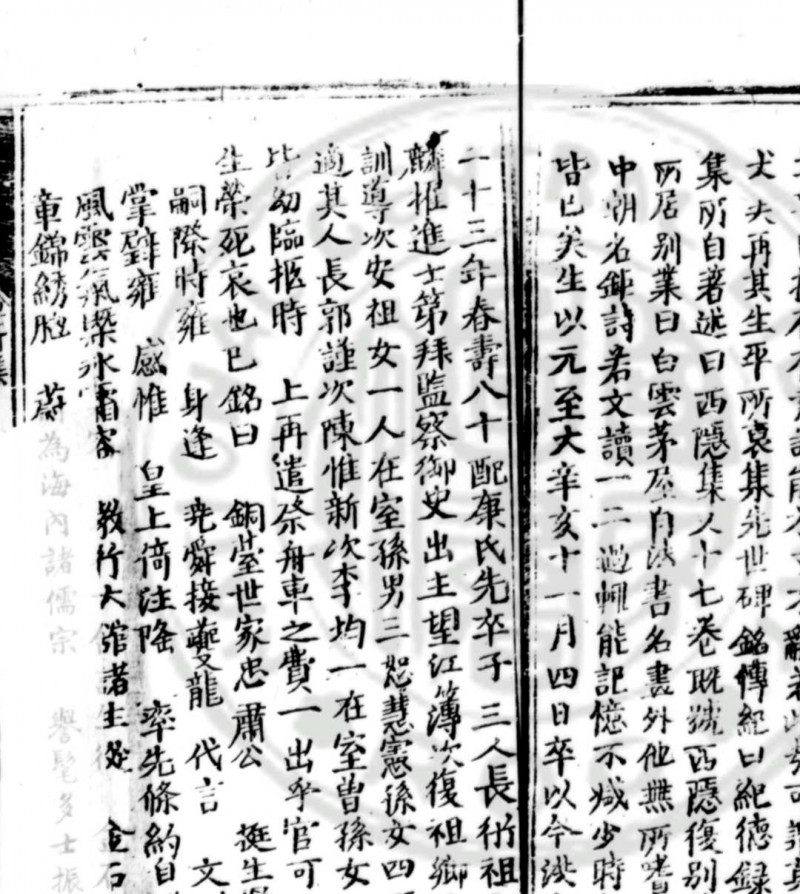 犬夫再其生平所裒集先世碑銘傳紀曰紀德録
集所自著述曰西隱集八十七卷既號西隱復別
所居別業曰白雲茅屋自法書名畫外他無所嗜
中朝名鉅詩若文讀一二過輒能記憶不減少時
皆已矣生以元至大辛亥十一月四日卒以今洪
二十三年春壽八十配康氏先卒子三人長衍祖
麟擢進士第拜監察御史出主望江簿次復祖鄉
訓導次安祖女一人在室孫男三恕慧憲孫女四
適其人長郭謹次陳惟新次李均一在室曾孫女
皆幼臨抠時上再遣祭舟車之費一出乎官可
生榮死哀也已銘曰 銅臺世家忠肅公 挺生
嗣際時雍 身逢堯舜接夔龍 代言文
掌辟雍 感惟皇上倚注隆 率先條約自
風雲氣 教行大 諸生從 金石
章錦綉腔 蔚為海內諸儒宗 譽髦多士振